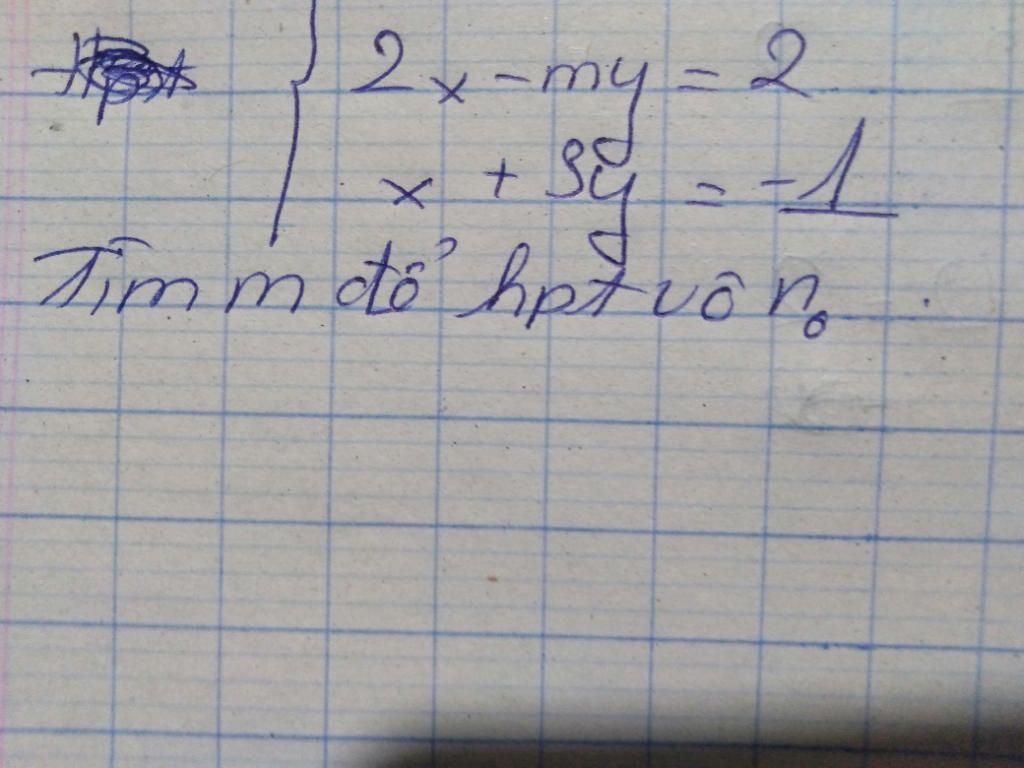 2x - my = 2
x + 3y = -1
Tìm m để hpt vô no